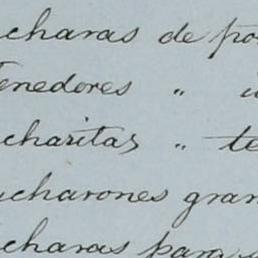 charas de po
enedores "
charitas " te
charones gran
charas para